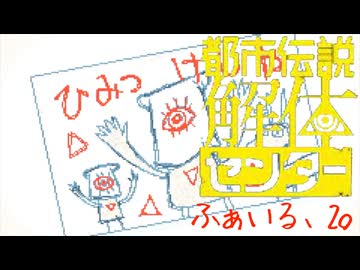 ひみつ
都市伝説
解体
センター
ふぁいる、20